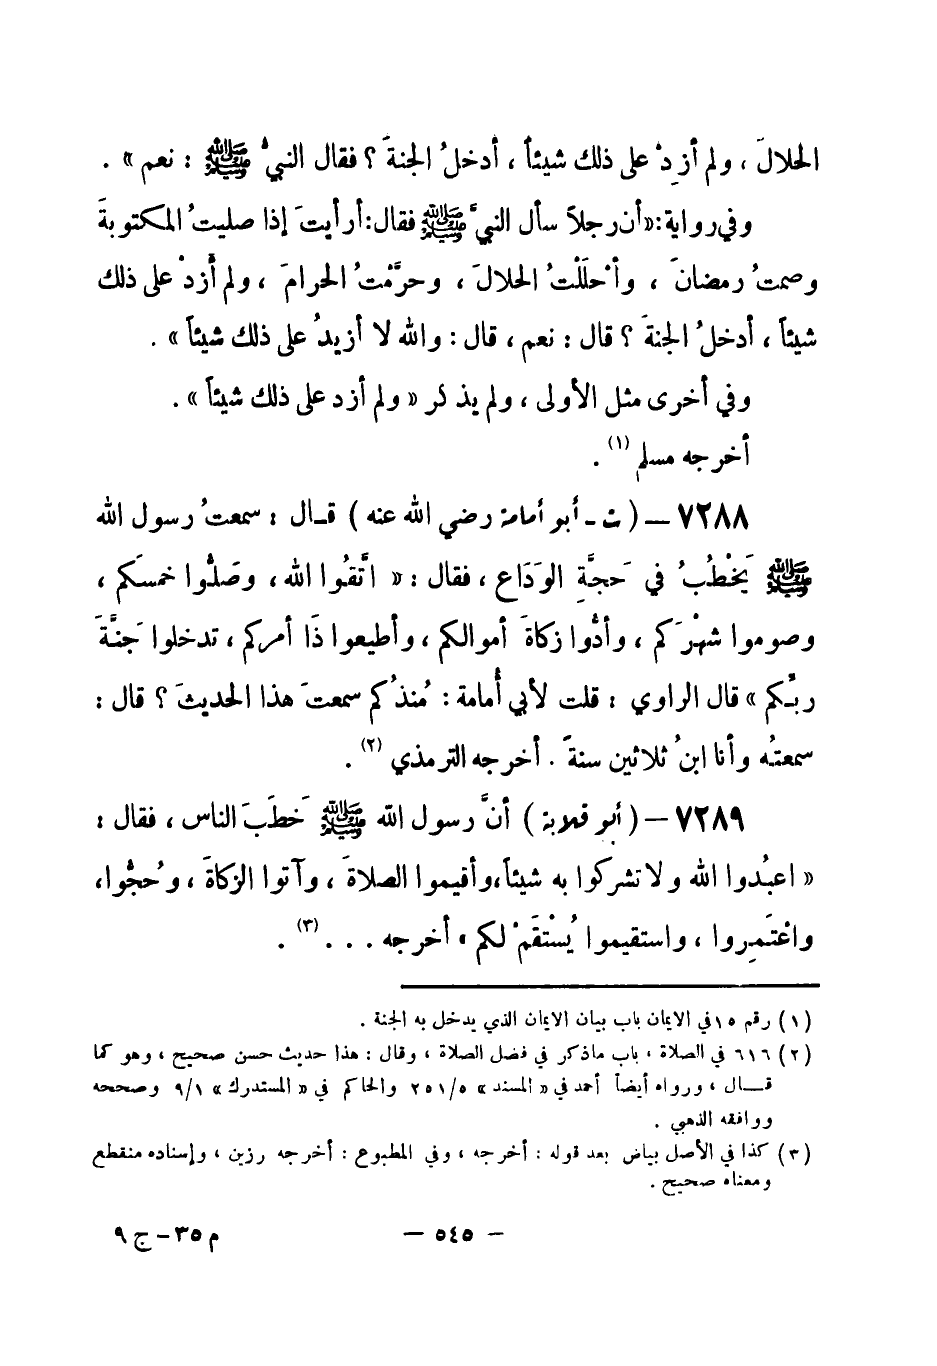 الحلالَ ، ولم أزِدْ على ذلك شيئاً ، أدخلُ الجنةَ ؟ فقال النبيُّ ﷺ : نعم » .
وفي رواية : « أن رجلاً سأل النبيَّ ﷺ فقال : أرأيتَ إذا صليتُ المكتوبةَ
وصمتُ رمضانَ ، وأَحْلَلْتُ الحلالَ ، وحرَّمْتُ الحرامَ ، ولم أَزدْ على ذلك
شيئاً ، أدخلُ الجنةَ ؟ قال : نعم ، قال : والله لا أزيدُ على ذلك شيئاً » .
وفي أخرى مثل الأولى ، ولم يذكر « ولم أزد على ذلك شيئاً » .
أخرجه مسلم (١) .
٧٢٨٨ – ( ت - أبو أمامة رضي الله عنه ) قـال : سمعتُ رسول الله
ﷺ يَخْطُبُ في حَجَّةِ الوَدَاع ، فقال : « اتَّقُوا الله ، وصَلُّوا خمسَكم ،
وصوموا شهْرَكم ، وأدُّوا زكاةَ أموالكم ، وأطيعوا ذَا أمركم ، تدخلوا جَنَّةَ
ربِّكم » قال الراوي : قلت لأبي أُمامة : مُنذُ كم سمعتَ هذا الحديثَ ؟ قال :
سمعتُه وأنا ابنُ ثلاثين سنةً . أخرجه الترمذي (٢) .
٧٢٨٩ – ( أبو قلابة ) أنَّ رسول الله ﷺ خَطَبَ الناس ، فقال :
« اعبُدوا الله ولا تشركوا به شيئاً ، وأقيموا الصلاةَ ، وآتوا الزكاةَ ، وحُجُّوا ،
واعْتَمِروا ، واستقيموا يُسْتَقَمْ لكم » أخرجه . . . (٣) .
(١) رقم ١٥ في الايمان باب بيان الايمان الذي يدخل به الجنة .
(٢) ٦١٦ في الصلاة ، باب ماذكر في فضل الصلاة ، وقال : هذا حديث حسن صحيح ، وهو كما
قـــال ، ورواه أيضاً أحمد في « المسند » ٢٥١/٥ والحاكم في « المستدرك » ٩/١ وصححه
ووافقه الذهبي .
(٣) كذا في الأصل بياض بعد قوله : أخرجه ، وفي المطبوع : أخرجه رزين ، وإسناده منقطع
ومعناه صحيح .
– ٥٤٥ –
م ٣٥ – ج ٩